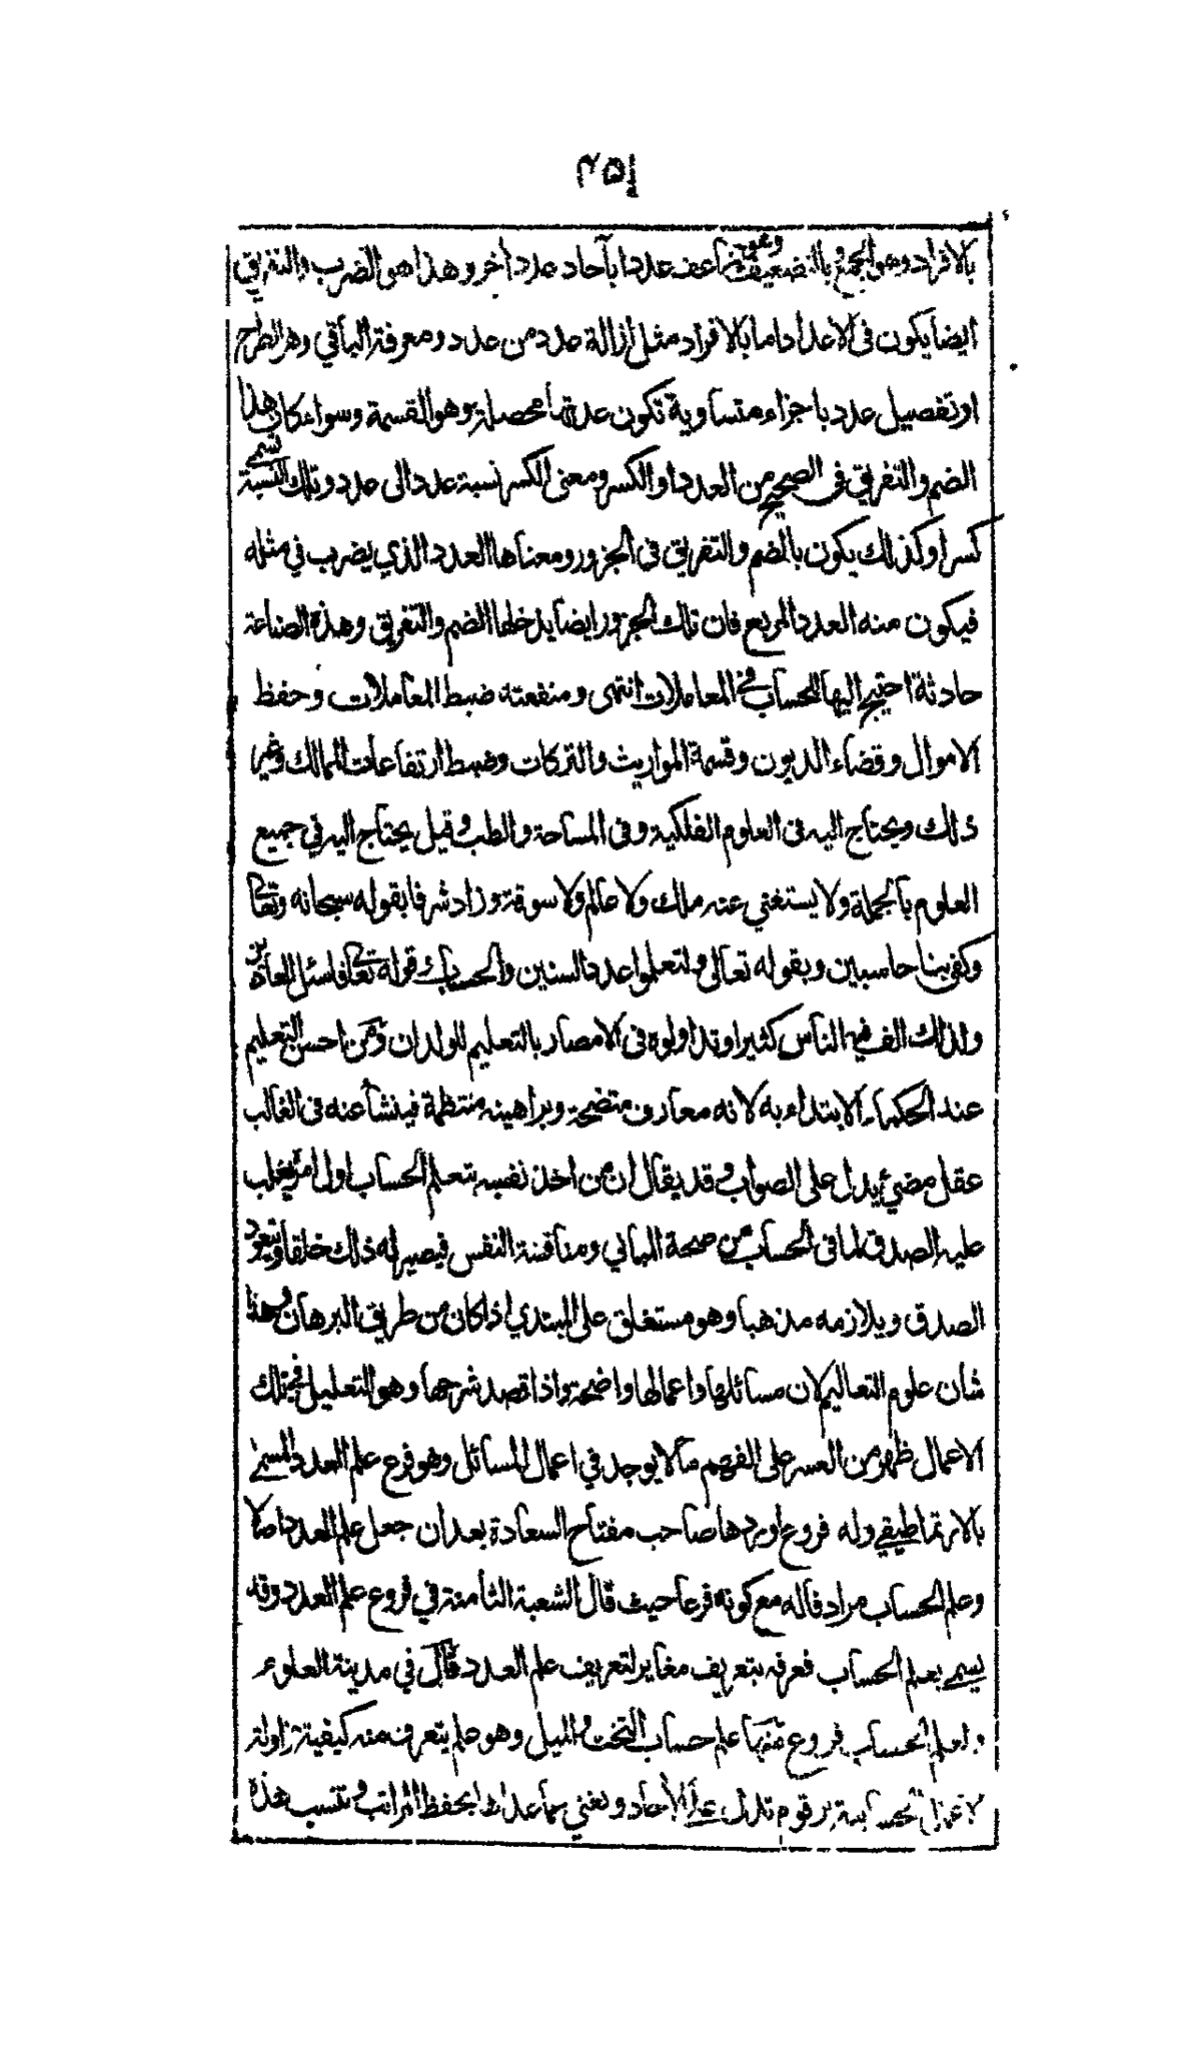 ٢٥١
بالافراد وهو الجمع وبالتضعيف وهو تضاعف عددا بآحاد عدد أخر وهذا هو الضرب والتفريق
ايضا يكون في الاعداد اما بالافراد مثل ازالة عدد من عدد ومعرفة الباقي وهو الطرح
او تفصيل عدد باجزاء متساوية تكون عدتها محصلة وهو القسمة وسواء كان هذا
الضم والتفريق في الصحيح من العدد او الكسر ومعنى الكسر نسبة عدد الى عدد وتلك النسبة تسمى
كسرا وكذلك يكون بالضم والتفريق في الجزور ومعناها العدد الذي يضرب في مثله
فيكون منه العدد المربع فان تلك الجزور ايضا يدخلها الضم والتفريق وهذه الصناعة
حادثة احتيج اليها للحساب في المعاملات انتهى ومنفعته ضبط المعاملات وحفظ
الاموال وقضاء الديون وقسمة المواريث والتركات وضبط ارتفاعات الممالك وغير
ذلك ويحتاج اليه في العلوم الفلكية وفي المساحة والطب وقيل يحتاج اليه في جميع
العلوم بالجملة ولا يستغني عنه ملك ولا عالم ولا سوقة وزاد شرفا بقوله سبحانه وتعالى
وكفى بنا حاسبين وبقوله تعالى ولتعلموا عدد السنين والحساب وقوله تعالى فاسئل العادين
ولذلك الف فيه الناس كثيرا وتداولوه في الامصار بالتعليم للولدان ومن احسن التعليم
عند الحكماء الابتداء به لانه معارف متضحة وبراهينه منتظمة فينشأ عنه في الغالب
عقل مضيئ يدل على الصواب وقد يقال ان من اخذ نفسه بتعلم الحساب اول امره يغلب
عليه الصدق لما في الحساب من صحة المباني ومناقشة النفس فيصير له ذلك خلقا ويتعود
الصدق ويلازمه مذهبا وهو مستغلق على المبتدي اذا كان من طريق البرهان وهذا
شان علوم التعاليم لان مسائلها واعمالها واضحة واذا قصد شرحها وهو التعليل في تلك
الاعمال ظهر من العسر على الفهم ما لا يوجد في اعمال المسائل وهو فرع علم العدد المسمى
بالارتماطيقي وله فروع اوردها صاحب مفتاح السعادة بعد ان جعل علم العدد اصلا
وعلم الحساب مرادفا له مع كونه فرعا حيث قال الشعبة الثامنة في فروع علم العدد وقد
يسمى بعلم الحساب فعرفه بتعريف مغاير لتعريف علم العدد قال في مدينة العلوم
ولعلم الحساب فروع منها علم حساب التخت والميل وهو علم يتعرف منه كيفية مزاولة
الاعمال الحسابية برقوم تدل على الآحاد وتغني عما عداها بحفظ المراتب وتنسب هذه